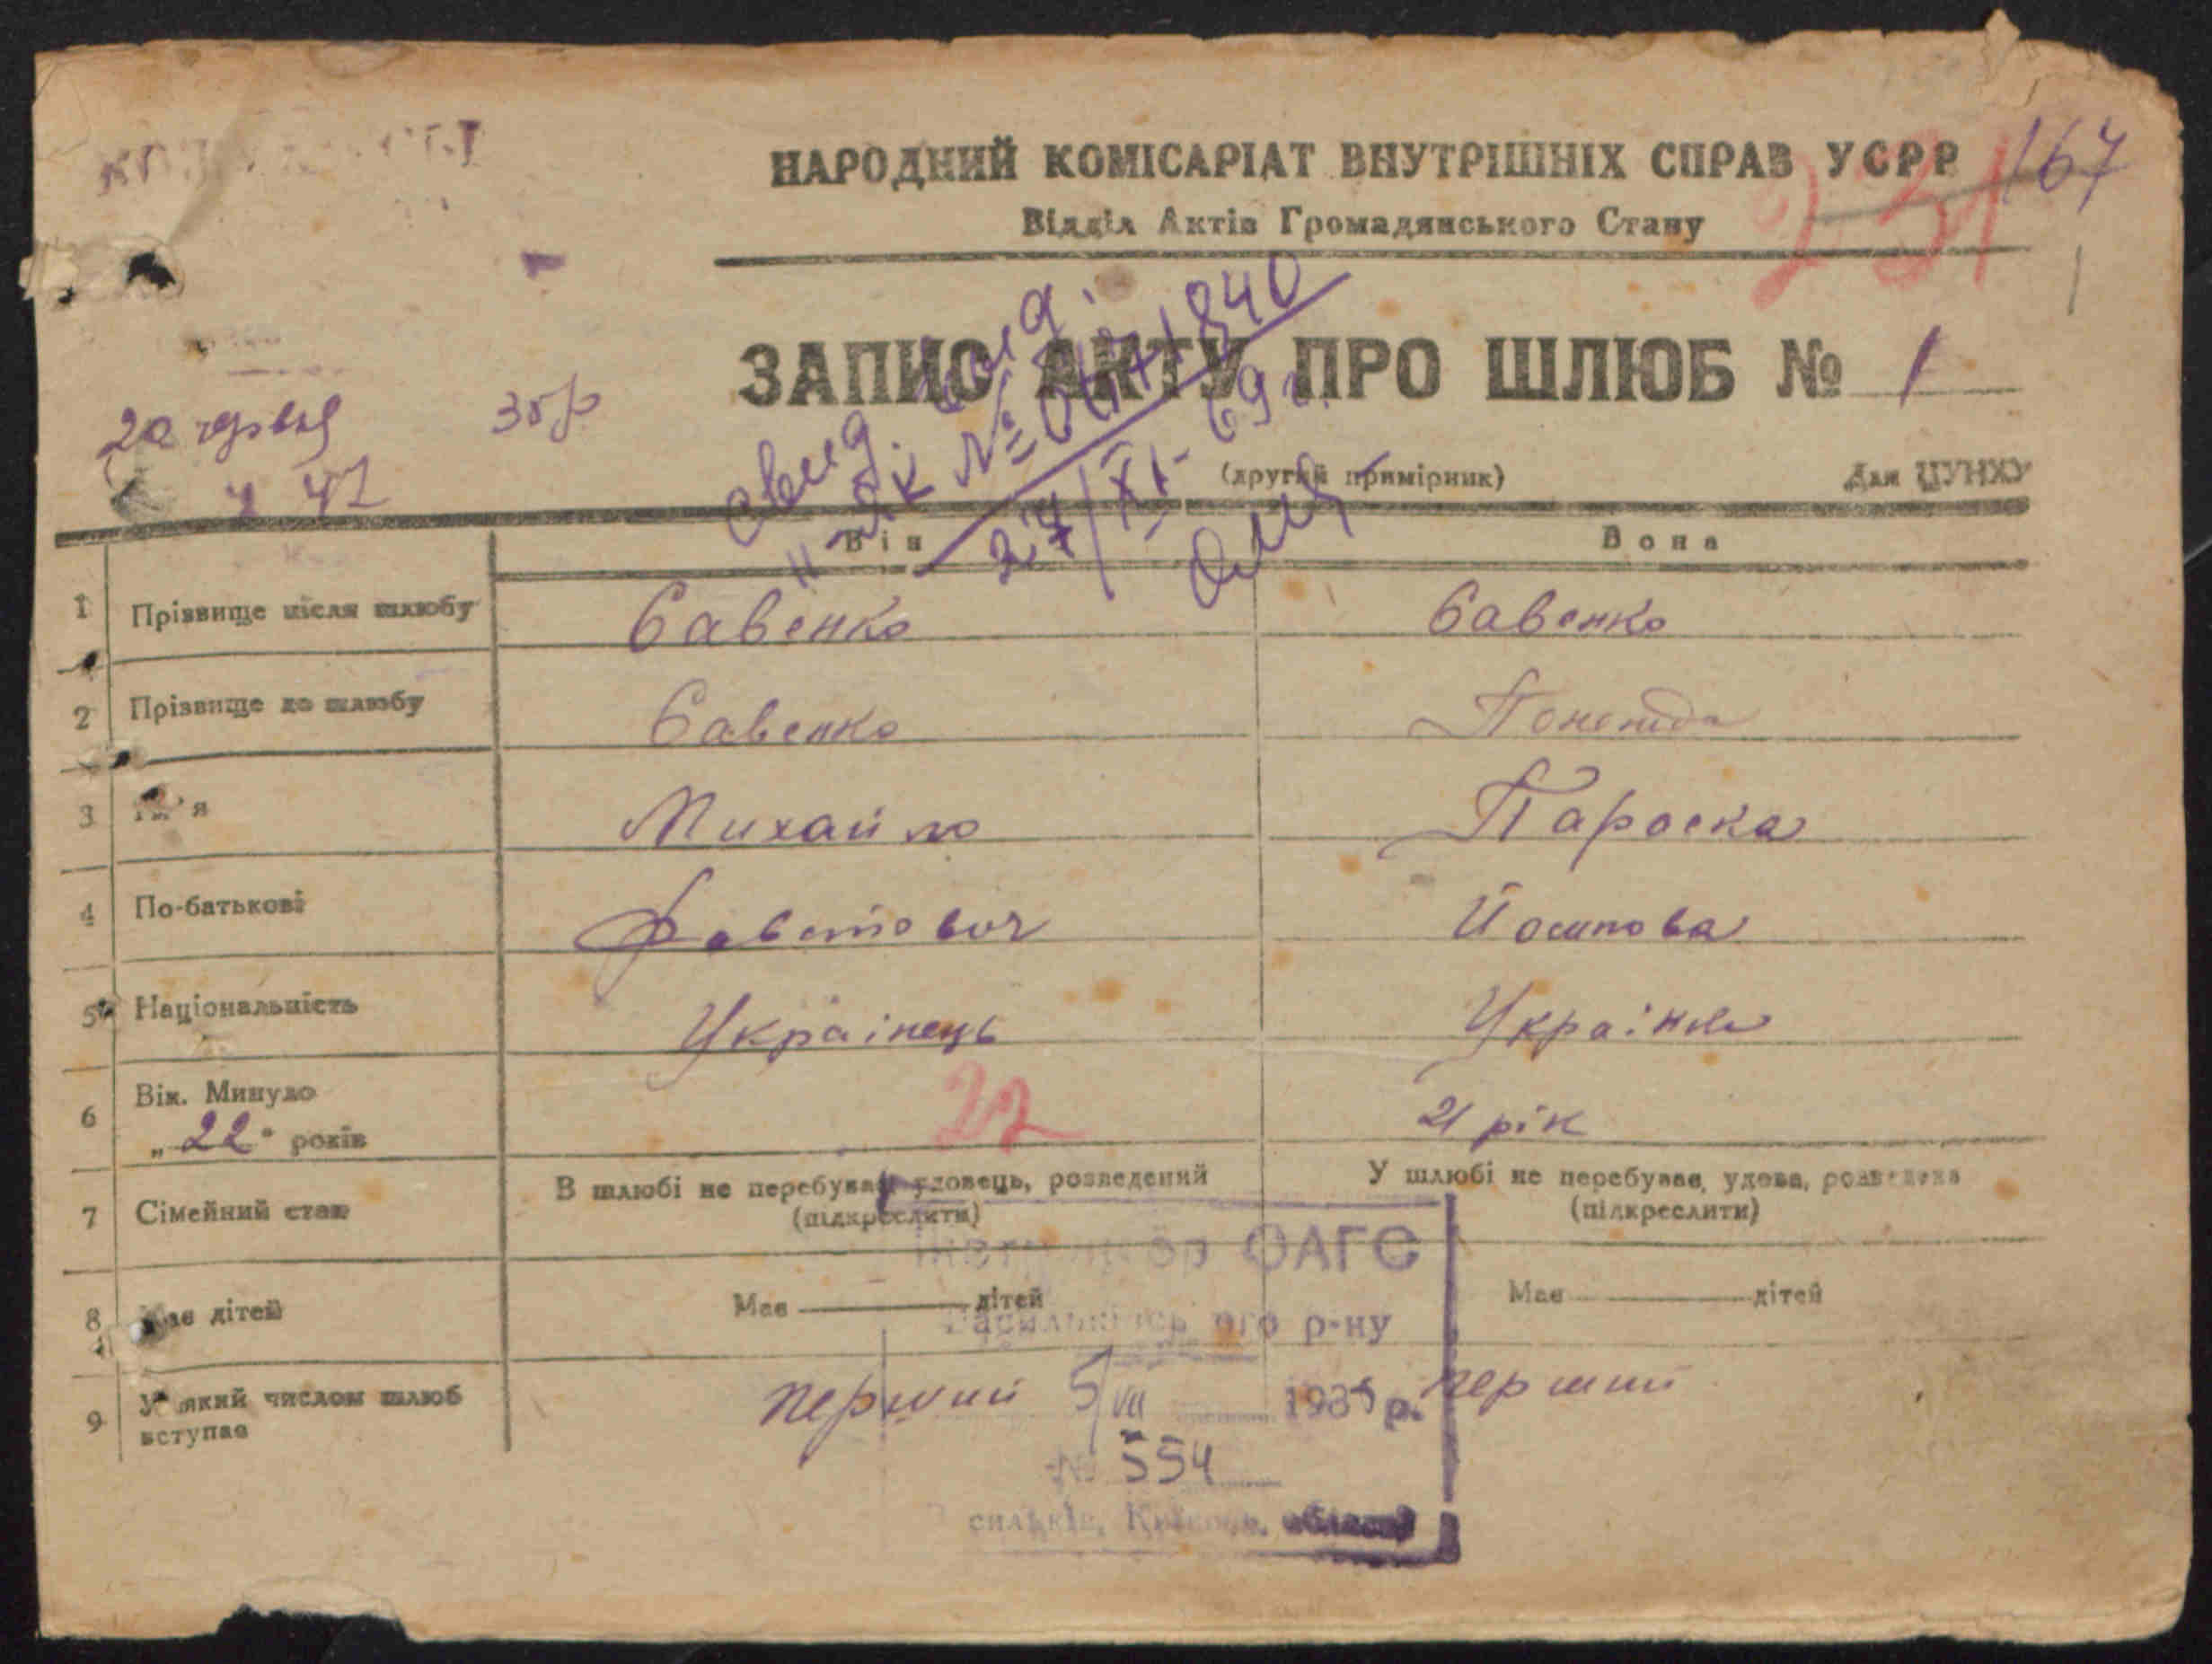 НАРОДНИЙ КОМІСАРІАТ ВНУТРІШНІХ СПРАВ УСРР
167
231
Відділ Актів Громадянського Стану
ЗАПИС АКТУ ПРО ШЛЮБ № 1
20 червня 35 р
Ч 47
свид.
№ 0671840
27/XI-69 г.
(другий примірник)
Для ЦУНХУ
Він Вона
1 Прізвище після шлюбу Савенко Савенко
2 Прізвище до шлюбу Савенко
3 Ім'я Михайло Параска
4 По-батькові Йосипова
5 Національність Українець Українка
6 Вік. Минуло „22" років 22 21 рік
7 Сімейний стан В шлюбі не перебував, удовець, розведений (підкреслити) У шлюбі не перебуває, удова, розведена (підкреслити)
8 Має дітей Має дітей Має дітей
9 У який числом шлюб вступає перший перший
ОАГС
р-ну
5/VII 1935 р.
№ 554